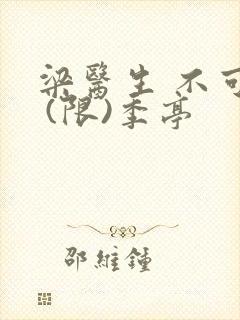 梁醫生 不可
(限)季亭
邵維鍾